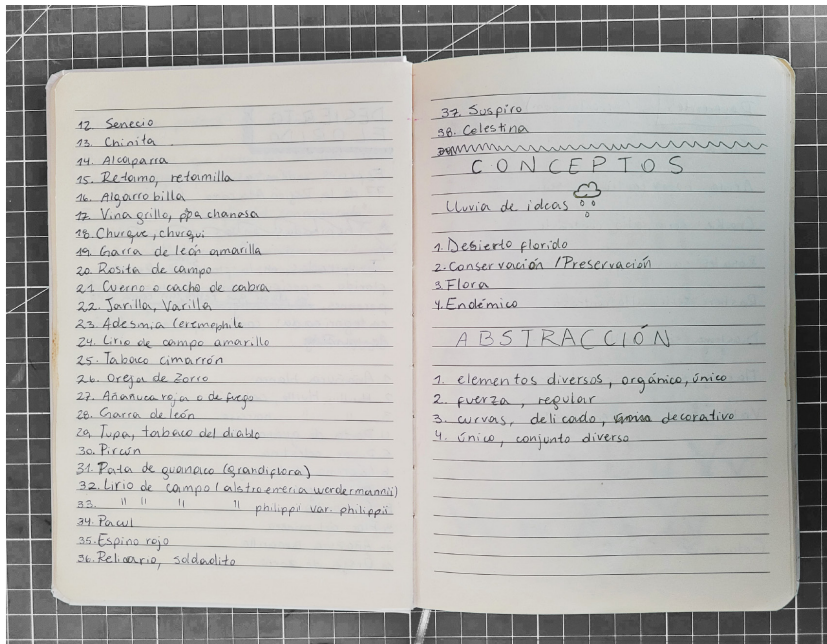 12 Senecio
13. Chinita
14. Alcaparra
15. Retamo, retamilla
16. Algarrobilla
17. Vinagrillo, ppa chanosa
18. Churque, churqui
19. Garra de león amarilla
20. Rosita de campo
21 Cuerno o cacho de cabra
22. Jarilla, Varilla
23. Adesmia (eremophila
24. Lirio de campo amarillo
25. Tabaco cimarrón
26. Oreja de Zorro
27. Añañuca roja o de fuego
28. Garra de león
29. Tupa, tabaco del diablo
30. Pircún
31. Pata de guanaco (grandiflora)
32. Lirio de campo (alstroemeria werdermannii)
33. " " " " philippii var. philippii
34. Pacul
35. Espino rojo
36. Relicario, soldadito
37. Suspiro
38. Celestina
CONCEPTOS
Lluvia de ideas
1. Desierto florido
2. Conservación / Preservación
3. Flora
4. Endémico
ABSTRACCIÓN
1. elementos diversos, orgánico, único
2. fuerza, regular
3. curvas, delicado, decorativo
4. único, conjunto diverso